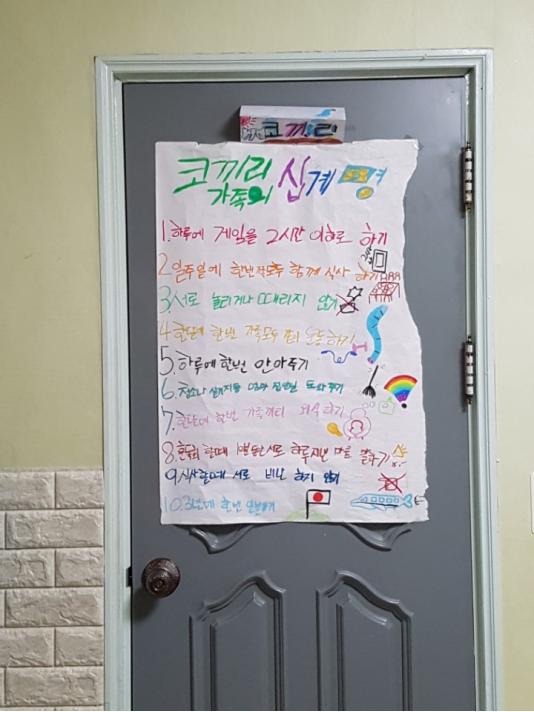 코끼리
코끼리 십계명
가족의
1. 하루에 게임을 2시간 이하로 하기
2. 일주일에 한번 모두 함께 식사하기
3. 서로 놀리거나 때리지 않기
4. 한달에 한번 가족모두 운동하기
5. 하루에 한번 안아주기
6. 청소나 설거지등 도와주기
7. 한달에 한번 가족끼리 외식하기
8. 회의 할때 서로 하루 지낸 마음
9. 식사할때 서로 비난 하지 않기
10. 3년에 한번 일본가기